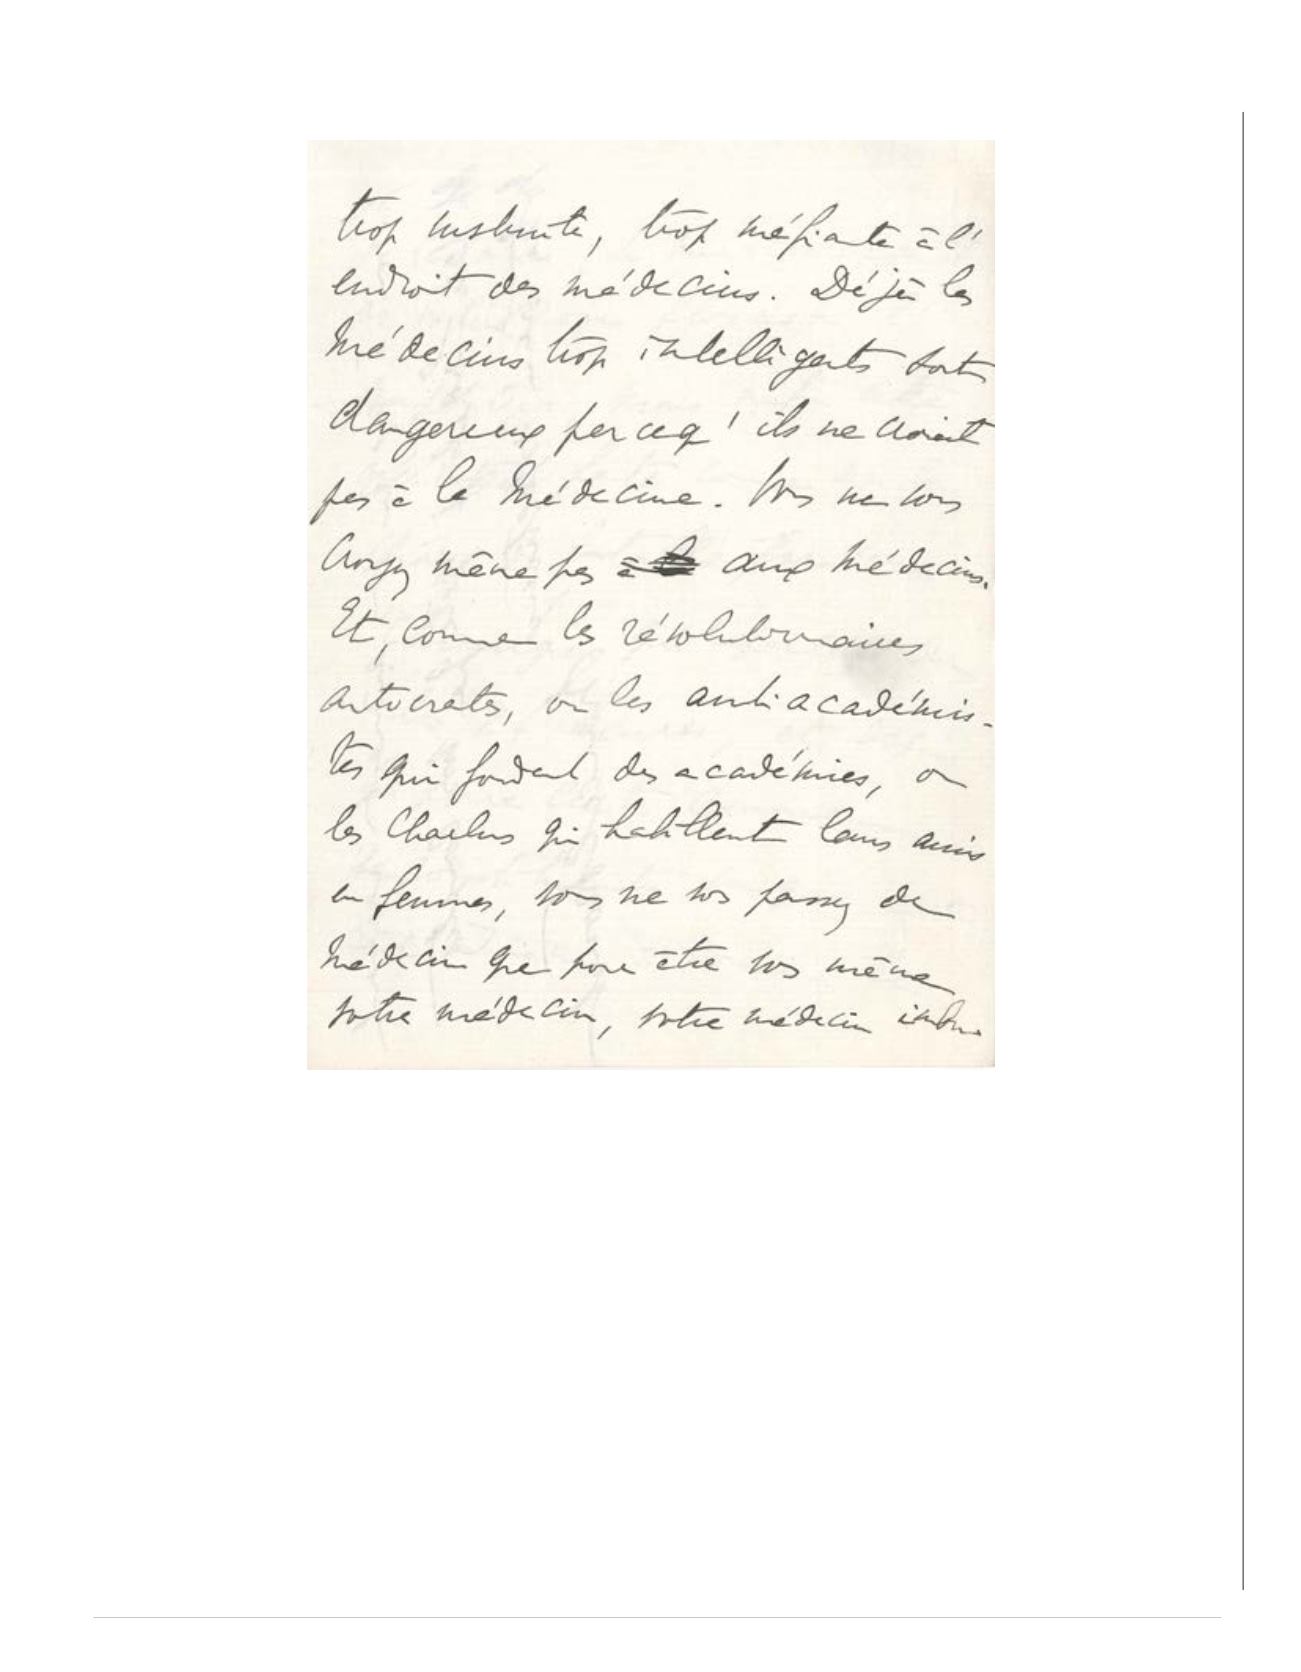 trop instruite, trop méfiante à l'
endroit des médecins. Déjà les
Médecins trop intelligents sont
dangereux parceq' ils ne croient
pas à la Médecine. Vous ne vous
croyez même pas à aux Médecins.
Et, comme les révolutionnaires
autocrates, ou les antiacadémis-
tes qui fondent des académies, ou
les Charlus qui habillent leurs amis
en femmes, vous ne vous passez de
Médecin que pour être vous même
votre médecin, votre médecin